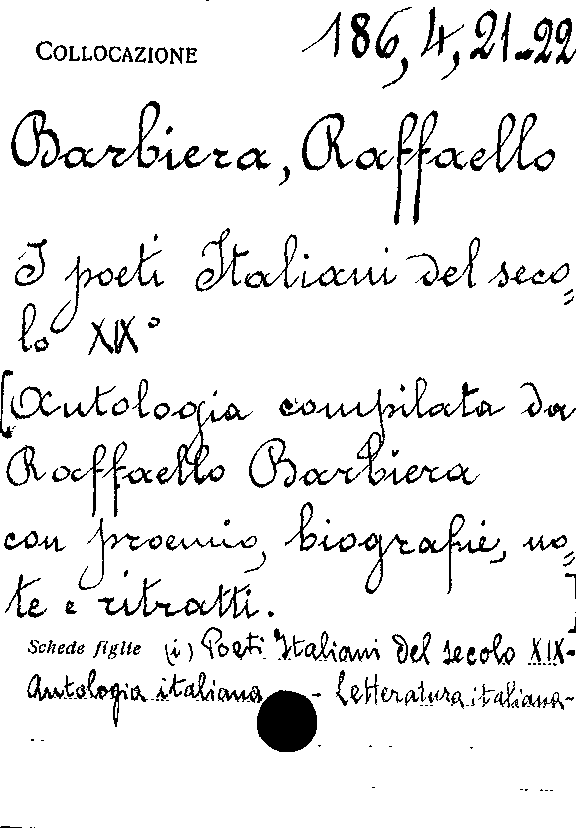 COLLOCAZIONE 186,4,21-22
Barbiera, Raffaello
I poeti Italiani del seco=
lo XIX°
[Antologia compilata da
Raffaello Barbiera
con proemio, biografie, no=
te e ritratti.]
Schede figlie (i) Poeti Italiani del secolo XIX-
Antologia italiana - Letteratura italiana-